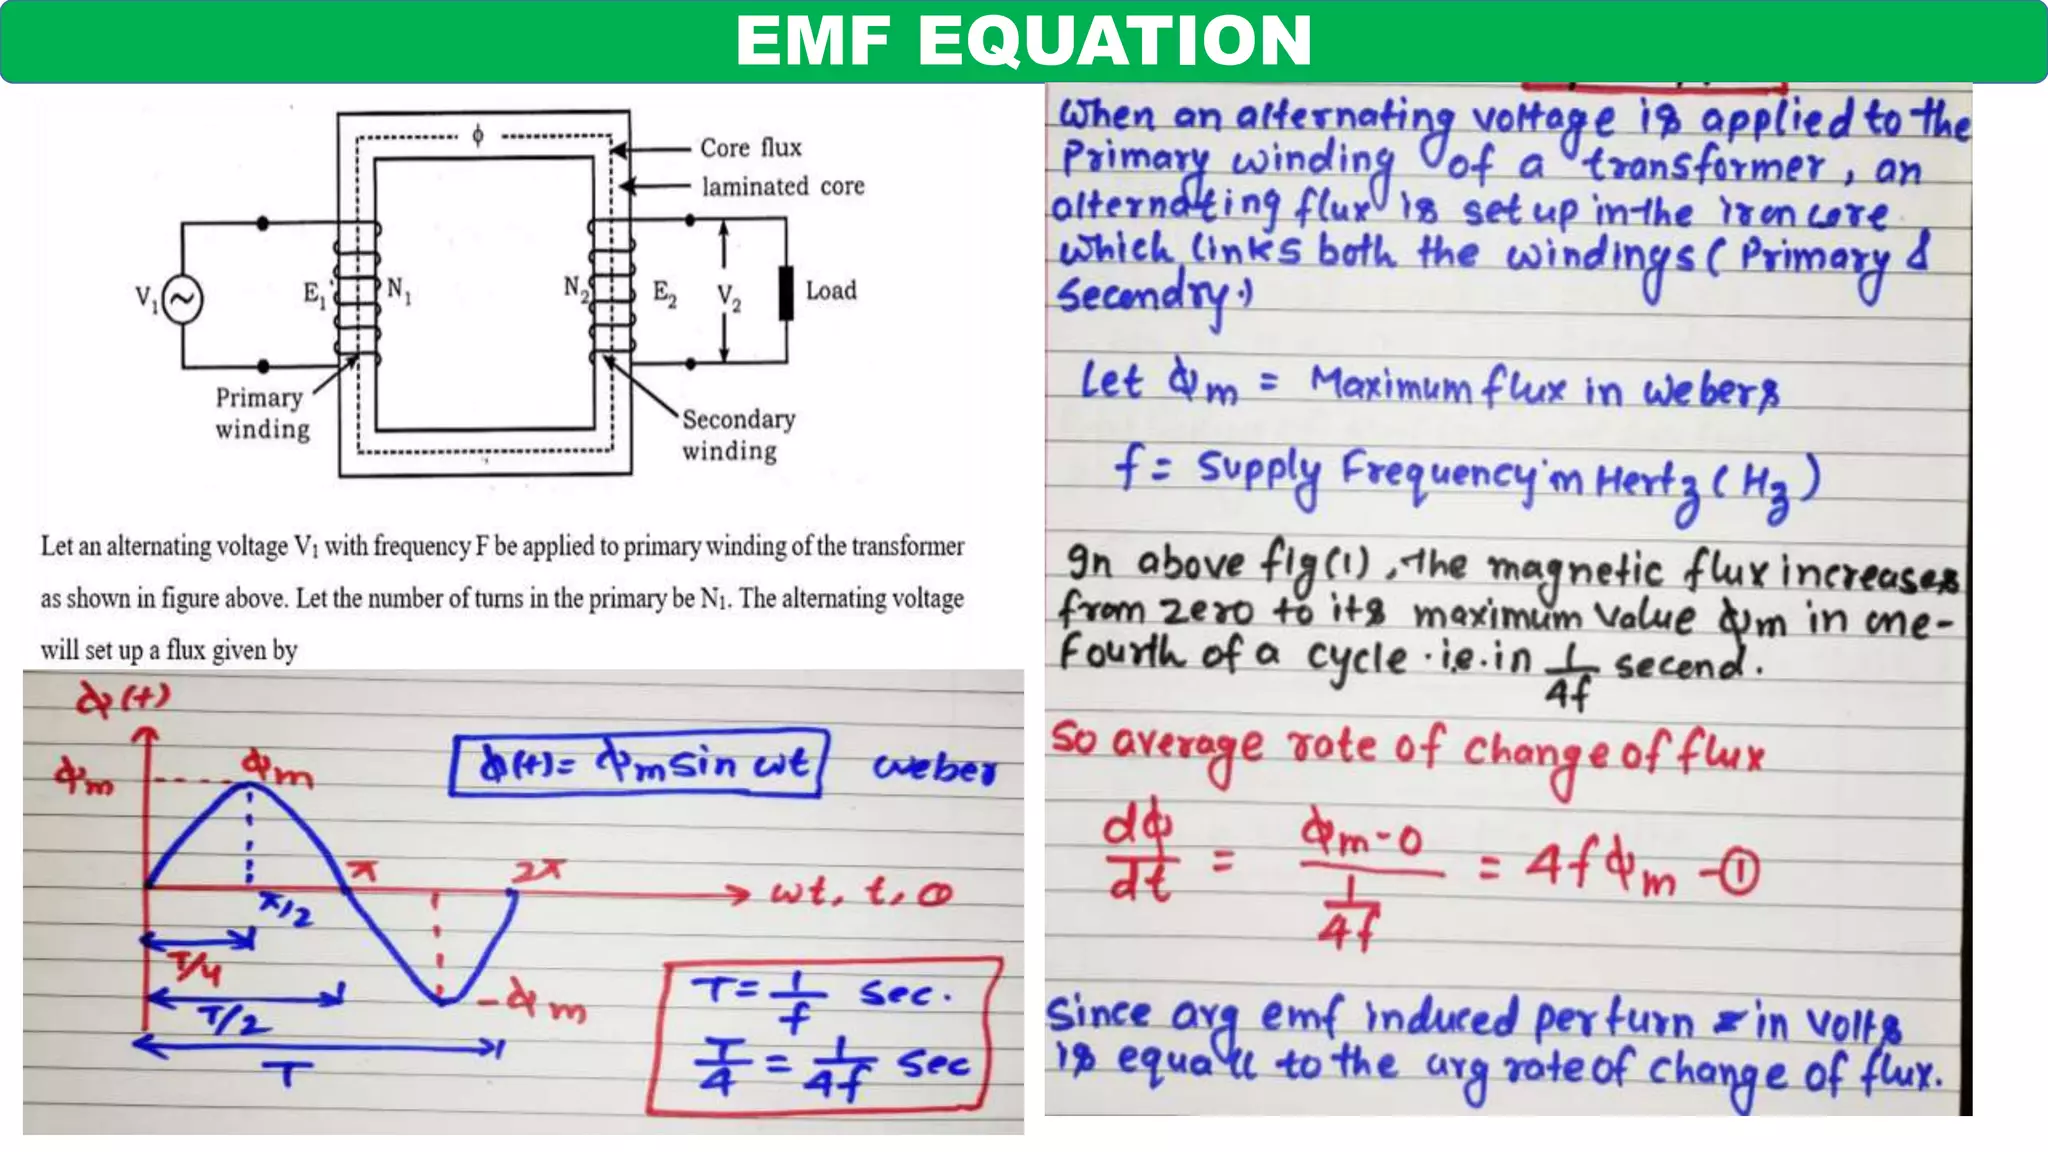 EMF EQUATION
ϕ
Core flux
laminated core
V₁
E₁
N₁
N₂
E₂
V₂
Load
Primary
winding
Secondary
winding
Let an alternating voltage V₁ with frequency F be applied to primary winding of the transformer
as shown in figure above. Let the number of turns in the primary be N₁. The alternating voltage
will set up a flux given by
ϕ(t)
ϕm
ϕm
ϕ(t) = ϕm sin ωt weber
π
2π
ωt, t, θ
π/2
T/4
-ϕm
T/2
T
T = 1/f sec.
T/4 = 1/4f sec
When an alternating voltage is applied to the
Primary winding of a transformer, an
alternating flux is set up in the iron core
which links both the windings (Primary &
Secondry.)
Let ϕm = Maximum flux in webers
f = Supply Frequency in Hertz (Hz)
In above fig(1), the magnetic flux increases
from zero to its maximum value ϕm in one-
Fourth of a cycle. i.e. in 1/4f second.
So average rate of change of flux
dϕ/dt = (ϕm - 0)/(1/4f) = 4fϕm -①
Since avg emf induced per turn in volts
is equall to the avg rate of change of flux.